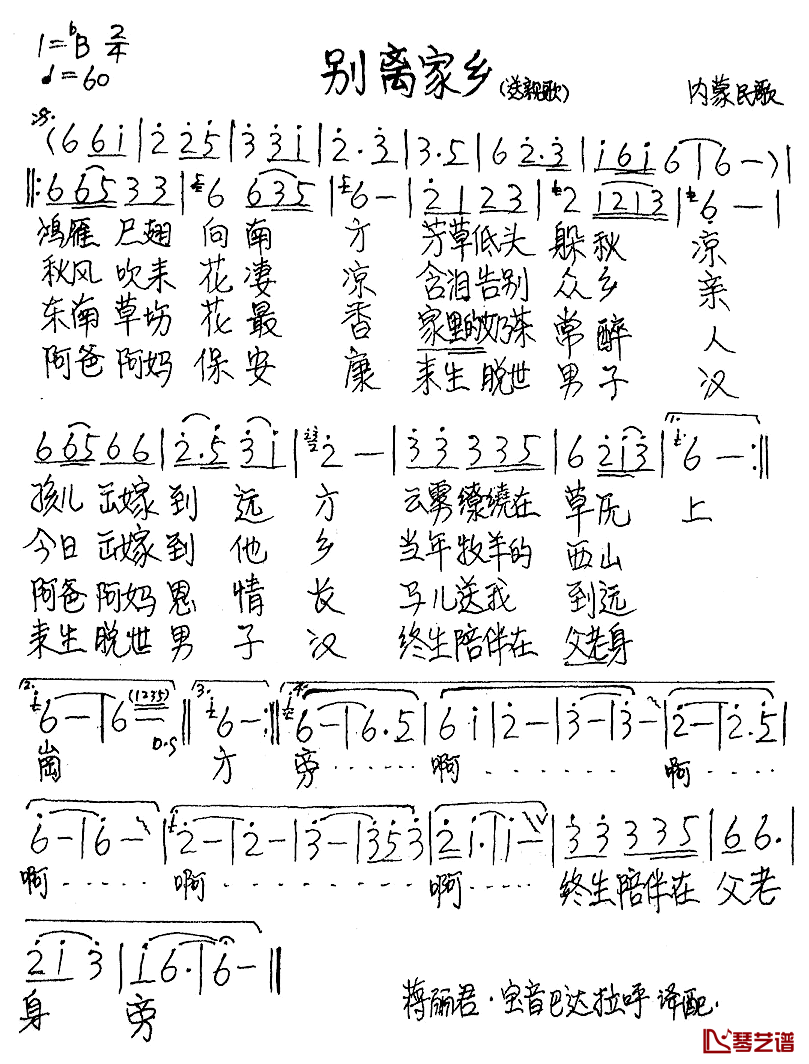 1=ᵇB 2/4
♩=60
别离家乡(送亲歌)
内蒙民歌
(6 6 i | 2 2 5 | 3 3 i | 2 · 3 | 3 · 5 | 6 2 · 3 | i 6 i 6 | 6 — ) |
‖: 6 6 5 3 3 | 6 6 3 5 | 6 — | 2 1 2 3 | 2 1 2 1 3 | 6 — |
鸿雁 尺翅 向南 方 芳草低头 躲秋 凉
秋风 吹来 花凄 凉 含泪告别 众乡 亲
东南 草场 花最 香 家里的奶茶 常醉 人
阿爸 阿妈 保安 康 来生脱世 男子 汉
6 6 5 6 6 | 2 · 5 3 i | 2 — | 3 3 3 3 5 | 6 2 i 3 | 6 — :‖
孩儿 出嫁到 远 方 云雾缭绕在 草原 上
今日 出嫁到 他 乡 当年牧羊的 西山
阿爸 阿妈恩 情 长 马儿送我 到远
来生 脱世男 子 汉 终生陪伴在 父老身
2. 6 — | 6 (1235) ‖ 3. 6 — :‖ 4. 6 — | 6 · 5 | 6 i | 2 — | 3 — | 3 — | 2 — | 2 · 5 |
D.S
崗 方 旁…… 啊…… 啊……
6 — | 6 — | 2 — | 2 — | 3 — | 3 5 3 | 2 i · | i — | 3 3 3 3 5 | 6 6 · |
啊…… 啊…… 啊…… 终生陪伴在 父老
2 i 3 | i 6 · | 6 — ‖
身 旁
蒋丽君·宝音巴达拉呼 译配·
琴艺谱